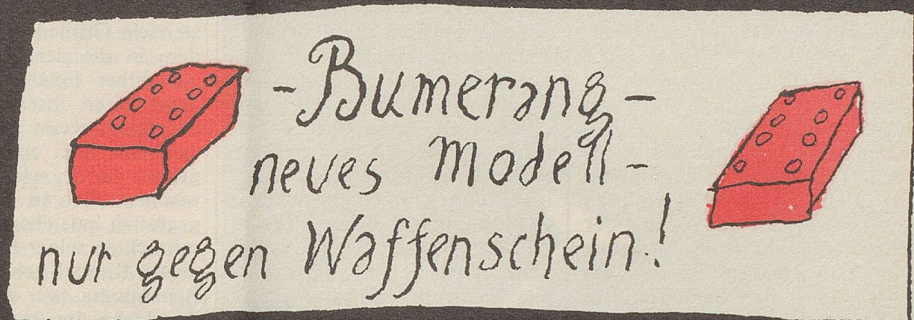 -Bumerang-
neues Modell-
nur gegen Waffenschein!